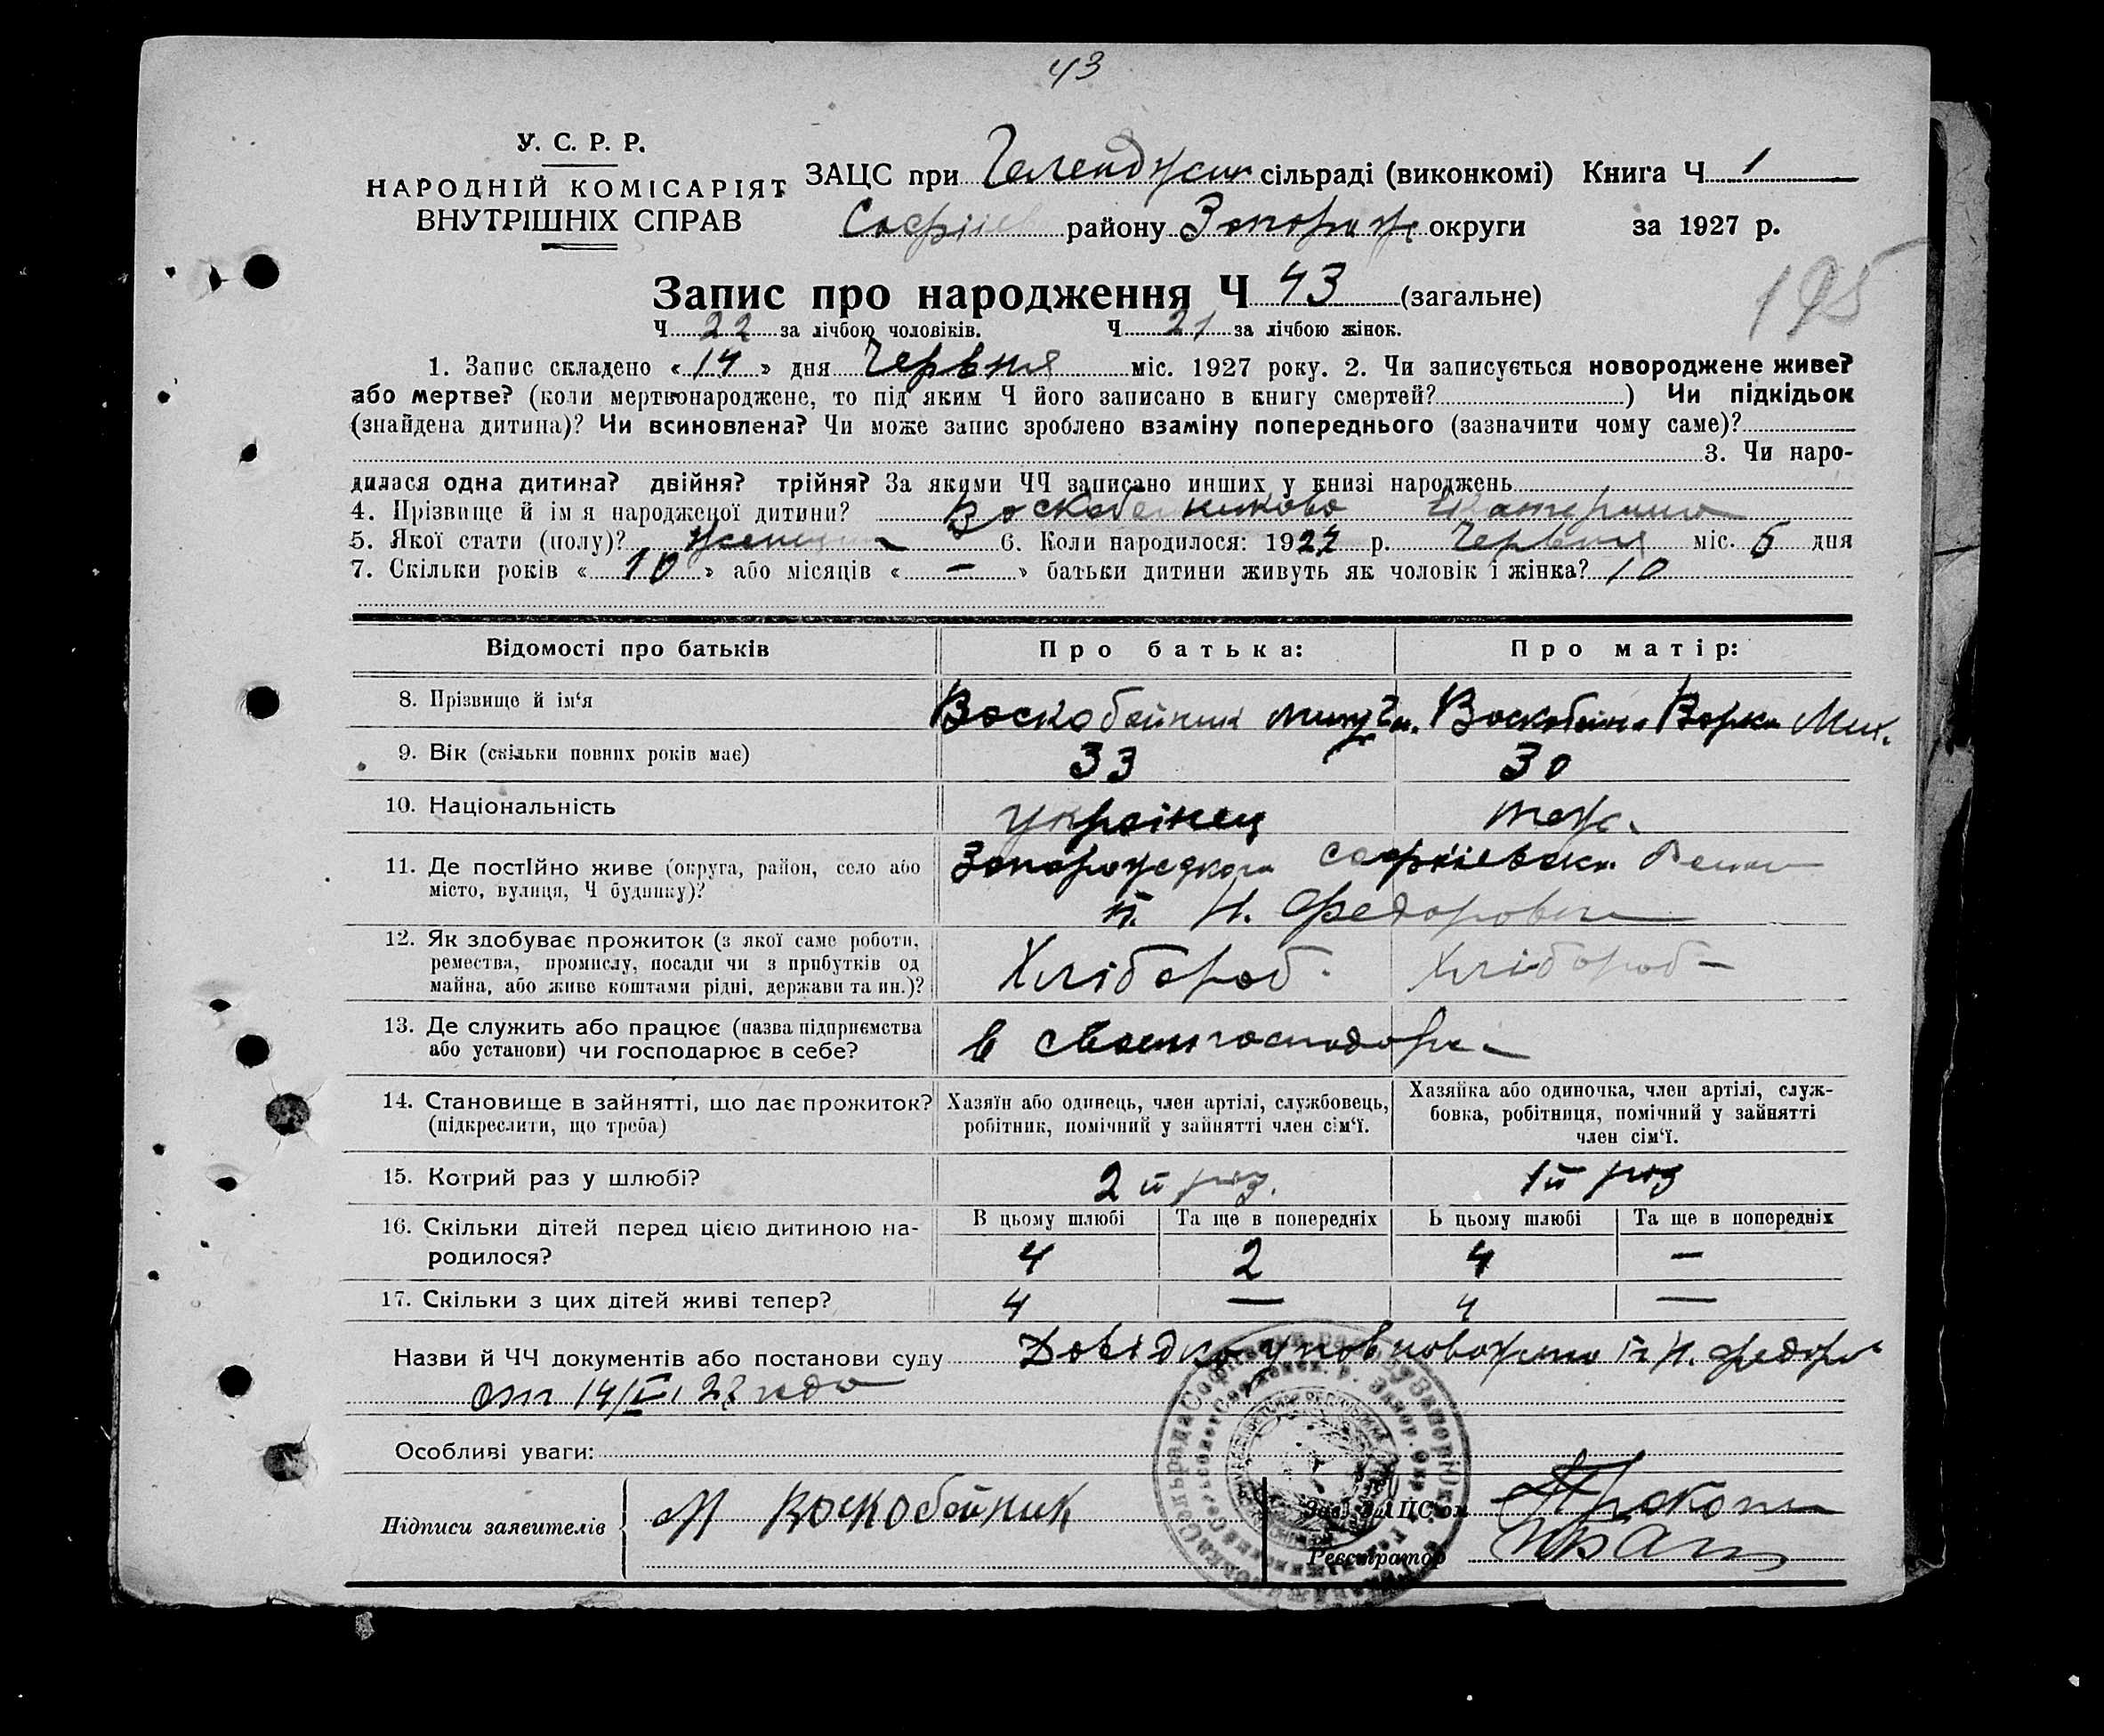 43
У. С. Р. Р.
НАРОДНІЙ КОМІСАРІЯТ
ВНУТРІШНІХ СПРАВ
ЗАЦС при сільраді (виконкомі) Книга Ч 1
Софіїв району Запоріж округи за 1927 р.
195
Запис про народження Ч 43 (загальне)
Ч 22 за лічбою чоловіків. Ч 21 за лічбою жінок.
1. Запис складено « 14 » дня Червня міс. 1927 року. 2. Чи записується новороджене живе?
або мертве? (коли мертвонароджене, то під яким Ч його записано в книгу смертей? ) Чи підкідьок
(знайдена дитина)? Чи всиновлена? Чи може запис зроблено взаміну попереднього (зазначити чому саме)?
3. Чи наро-
дилася одна дитина? двійня? трійня? За якими ЧЧ записано инших у книзі народжень
4. Прізвище й ім я народженої дитини?
5. Якої стати (полу)? 6. Коли народилося: 1927 р. Червня міс. 5 дня
7. Скільки років « 10 » або місяців « — » батьки дитини живуть як чоловік і жінка? 10
Відомості про батьків Про батька: Про матір:
8. Прізвище й ім‘я Воскобойник Воскобойн Мих.
9. Вік (скільки повних років має) 33 30
10. Національність українец тож.
11. Де постійно живе (округа, район, село або
місто, вулиця, Ч будинку)?
п. Н. Федоровка
12. Як здобуває прожиток (з якої саме роботи,
ремества, промислу, посади чи з прибутків од
майна, або живе коштами рідні, держави та ин.)? Хлібороб Хлібороб
13. Де служить або працює (назва підприємства
або установи) чи господарює в себе? в своем господар
14. Становище в зайнятті, що дає прожиток?
(підкреслити, що треба)
Хазяїн або одинець, член артілі, службовець,
робітник, помічний у зайнятті член сім‘ї.
Хазяйка або одиночка, член артілі, служ-
бовка, робітниця, помічний у зайнятті
член сім‘ї.
15. Котрий раз у шлюбі? 2й раз. 1й раз
16. Скільки дітей перед цією дитиною на-
родилося?
В цьому шлюбі Та ще в попередніх В цьому шлюбі Та ще в попередніх
4 2 4 —
17. Скільки з цих дітей живі тепер? 4 — 4 —
Назви й ЧЧ документів або постанови суду Довідка уповноважено п Н. Федоров
от 14/VI 27 года
Особливі уваги:
Підписи заявителів М Воскобойник
Зав. ЗАЦС‘ом
Реєстратор